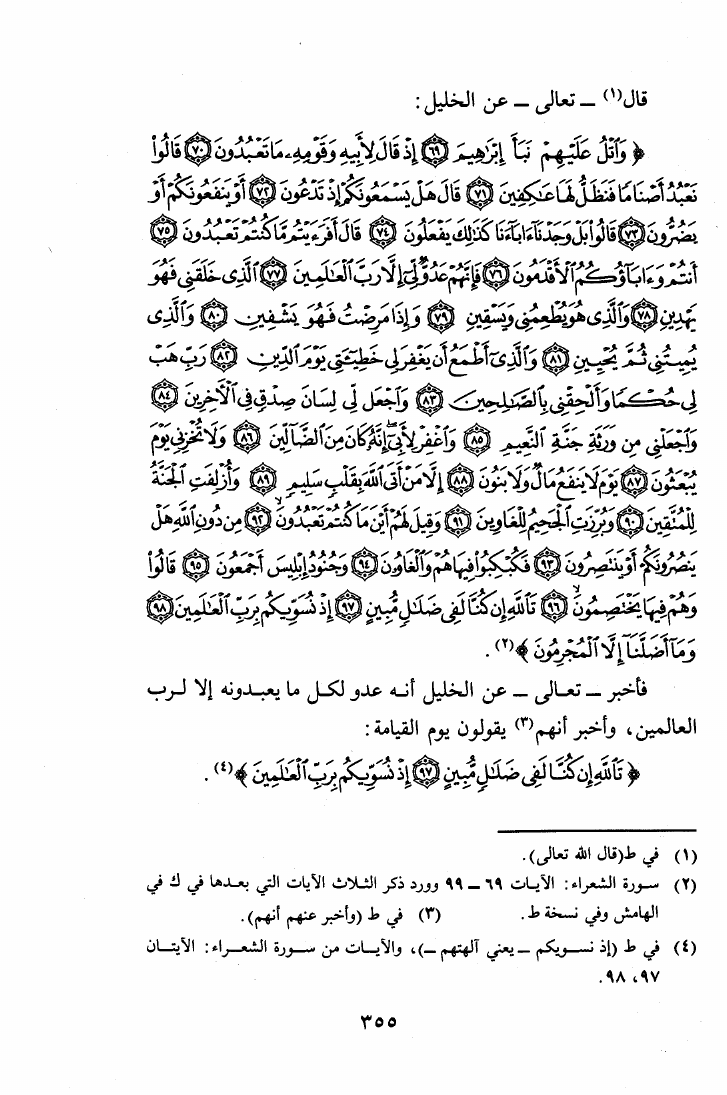 قال(١) ــ تعالى ــ عن الخليل :
﴿ وَٱتْلُ عَلَيْهِمْ نَبَأَ إِبْرَٰهِيمَ ۝٦٩ إِذْ قَالَ لِأَبِيهِ وَقَوْمِهِۦ مَا تَعْبُدُونَ ۝٧٠ قَالُوا۟
نَعْبُدُ أَصْنَامًا فَنَظَلُّ لَهَا عَـٰكِفِينَ ۝٧١ قَالَ هَلْ يَسْمَعُونَكُمْ إِذْ تَدْعُونَ ۝٧٢ أَوْ يَنفَعُونَكُمْ أَوْ
يَضُرُّونَ ۝٧٣ قَالُوا۟ بَلْ وَجَدْنَآ ءَابَآءَنَا كَذَٰلِكَ يَفْعَلُونَ ۝٧٤ قَالَ أَفَرَءَيْتُم مَّا كُنتُمْ تَعْبُدُونَ ۝٧٥
أَنتُمْ وَءَابَآؤُكُمُ ٱلْأَقْدَمُونَ ۝٧٦ فَإِنَّهُمْ عَدُوٌّ لِّىٓ إِلَّا رَبَّ ٱلْعَـٰلَمِينَ ۝٧٧ ٱلَّذِى خَلَقَنِى فَهُوَ
يَهْدِينِ ۝٧٨ وَٱلَّذِى هُوَ يُطْعِمُنِى وَيَسْقِينِ ۝٧٩ وَإِذَا مَرِضْتُ فَهُوَ يَشْفِينِ ۝٨٠ وَٱلَّذِى
يُمِيتُنِى ثُمَّ يُحْيِينِ ۝٨١ وَٱلَّذِىٓ أَطْمَعُ أَن يَغْفِرَ لِى خَطِيٓـَٔتِى يَوْمَ ٱلدِّينِ ۝٨٢ رَبِّ هَبْ
لِى حُكْمًا وَأَلْحِقْنِى بِٱلصَّـٰلِحِينَ ۝٨٣ وَٱجْعَل لِّى لِسَانَ صِدْقٍ فِى ٱلْـَٔاخِرِينَ ۝٨٤
وَٱجْعَلْنِى مِن وَرَثَةِ جَنَّةِ ٱلنَّعِيمِ ۝٨٥ وَٱغْفِرْ لِأَبِىٓ إِنَّهُۥ كَانَ مِنَ ٱلضَّآلِّينَ ۝٨٦ وَلَا تُخْزِنِى يَوْمَ
يُبْعَثُونَ ۝٨٧ يَوْمَ لَا يَنفَعُ مَالٌ وَلَا بَنُونَ ۝٨٨ إِلَّا مَنْ أَتَى ٱللَّهَ بِقَلْبٍ سَلِيمٍ ۝٨٩ وَأُزْلِفَتِ ٱلْجَنَّةُ
لِلْمُتَّقِينَ ۝٩٠ وَبُرِّزَتِ ٱلْجَحِيمُ لِلْغَاوِينَ ۝٩١ وَقِيلَ لَهُمْ أَيْنَ مَا كُنتُمْ تَعْبُدُونَ ۝٩٢ مِن دُونِ ٱللَّهِ هَلْ
يَنصُرُونَكُمْ أَوْ يَنتَصِرُونَ ۝٩٣ فَكُبْكِبُوا۟ فِيهَا هُمْ وَٱلْغَاوُۥنَ ۝٩٤ وَجُنُودُ إِبْلِيسَ أَجْمَعُونَ ۝٩٥ قَالُوا۟
وَهُمْ فِيهَا يَخْتَصِمُونَ ۝٩٦ تَٱللَّهِ إِن كُنَّا لَفِى ضَلَـٰلٍ مُّبِينٍ ۝٩٧ إِذْ نُسَوِّيكُم بِرَبِّ ٱلْعَـٰلَمِينَ ۝٩٨
وَمَآ أَضَلَّنَآ إِلَّا ٱلْمُجْرِمُونَ ﴾(٢) .
فأخبر ــ تعالى ــ عن الخليل أنه عدو لكل ما يعبدونه إلا لرب
العالمين، وأخبر أنهم(٣) يقولون يوم القيامة:
﴿ تَٱللَّهِ إِن كُنَّا لَفِى ضَلَـٰلٍ مُّبِينٍ ۝٩٧ إِذْ نُسَوِّيكُم بِرَبِّ ٱلْعَـٰلَمِينَ ﴾(٤) .
(١) في ط(قال الله تعالى).
(٢) سورة الشعراء: الآيات ٦٩ ــ ٩٩ وورد ذكر الثلاث الآيات التي بعدها في ك في
الهامش وفي نسخة ط. (٣) في ط (وأخبر عنهم أنهم).
(٤) في ط (إذ نسويكم ــ يعني آلهتهم ــ)، والآيات من سورة الشعراء: الآيتان
٩٧، ٩٨.
٣٥٥